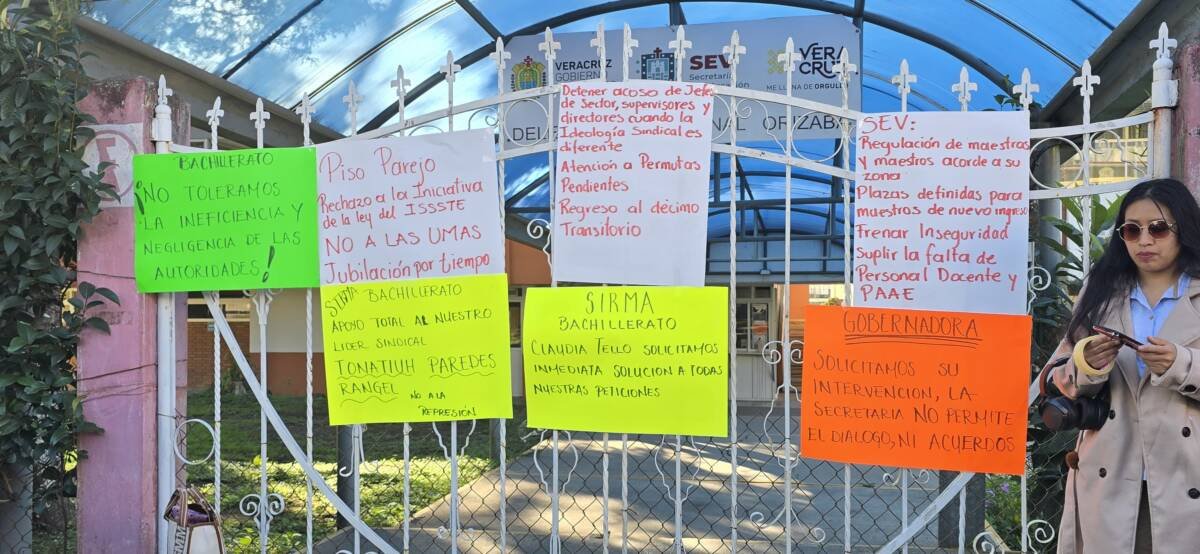 VERACRUZ
GOBIERNO
SEV
Secretaría
VERA
CRUZ
ME LLENA DE ORGULLO
DELE
NAL ORIZABA
BACHILLERATO
¡NO TOLERAMOS
LA INEFICIENCIA Y
NEGLIGENCIA DE LAS
AUTORIDADES!
Piso Parejo
Rechazo a la Iniciativa
de la ley del ISSSTE
NO A LAS UMAS
Jubilación por tiempo
Detener acoso de Jefes
de Sector, supervisores y
directores cuando la
Ideología Sindical es
diferente
Atención a Permutas
Pendientes
Regreso al décimo
Transitorio
SEV:
Regulación de maestras
y maestros acorde a su
zona
Plazas definidas para
maestros de nuevo ingreso
Frenar Inseguridad
Suplir la falta de
Personal Docente y
PAAE
SIRMA BACHILLERATO
APOYO TOTAL AL NUESTRO
LIDER SINDICAL
TONATIUH PAREDES
RANGEL NO A LA
REPRESIÓN
SIRMA
BACHILLERATO
CLAUDIA TELLO SOLICITAMOS
INMEDIATA SOLUCIÓN A TODAS
NUESTRAS PETICIONES
GOBERNADORA
SOLICITAMOS SU
INTERVENCIÓN, LA
SECRETARIA NO PERMITE
EL DIALOGO, NI ACUERDOS